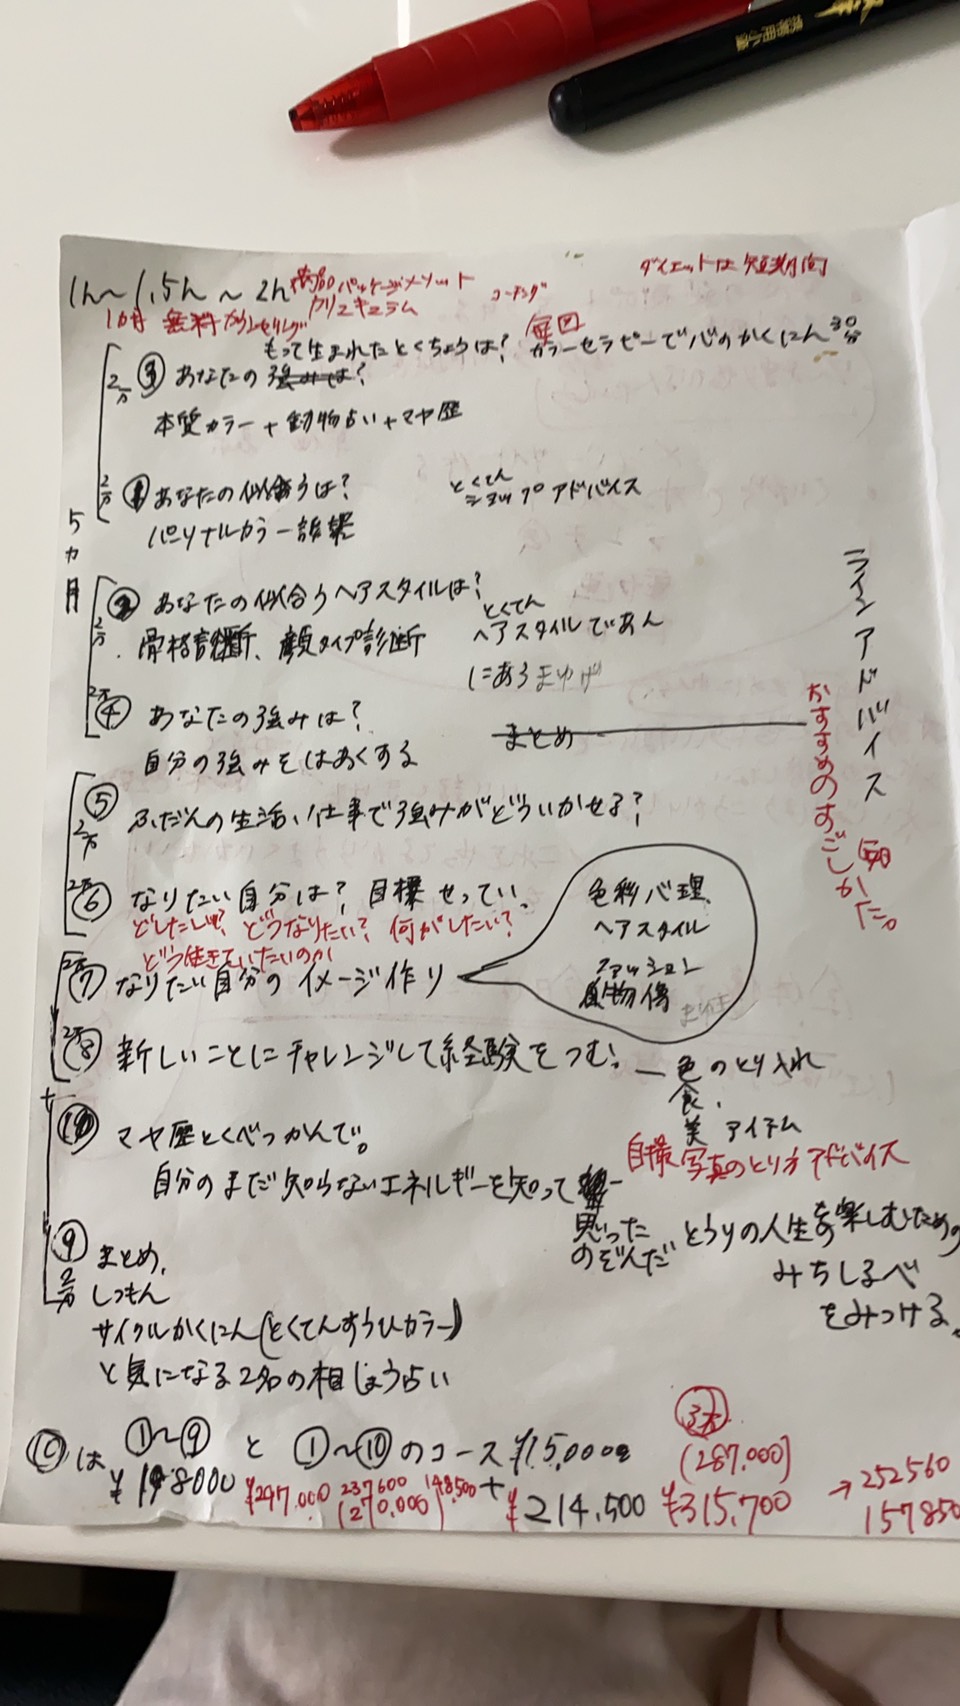 1h〜1.5h〜2h
パッケージメソット
カリキュラム
コーチング
ダイエットは短期間
無料カウンセリング
毎回
もって生まれたとくちょうは?
カラーセラピーで心のかくにん 30分
2h ③ あなたの強みは?
本質カラー+動物占い+マヤ歴
5カ月
2h ① あなたの似合うは?
パーソナルカラー診断
とくてん
ショップアドバイス
2h ② あなたの似合うヘアスタイルは?
骨格診断、顔タイプ診断
とくてん
ヘアスタイルであん
にあうまゆげ
2h ④ あなたの強みは?
自分の強みをはあくする
まとめ
ラインアドバイス
おすすめのすごしかた。
⑤ ふだんの生活、仕事で強みがどういかせる?
2h
2h ⑥ なりたい自分は?目標せってい、
どうなりたい?何がしたい?
どう生きていたいのか
2h ⑦ なりたい自分のイメージ作り
色彩心理、
ヘアスタイル
ファッション
2h ⑧ 新しいことにチャレンジして経験をつむ。
色のとり入れ
食、
美 アイテム
自撮写真のとり方アドバイス
⑩ マヤ歴とくべつかんで。
自分のまだ知らないエネルギーを知って
思った
のぞんだ
とうりの人生を楽しむための
みちしるべ
をみつける。
⑨ まとめ、
2h しつもん
サイクルかくにん(とくてんすうひカラー)
と気になる2名の相しょう占い
⑩は ①〜⑨ と ①〜⑩のコース ¥15,000
¥198000
¥297,000
237600
(270,000)
148,500
+
¥214,500
(287,000)
¥315,700
→252560
157850